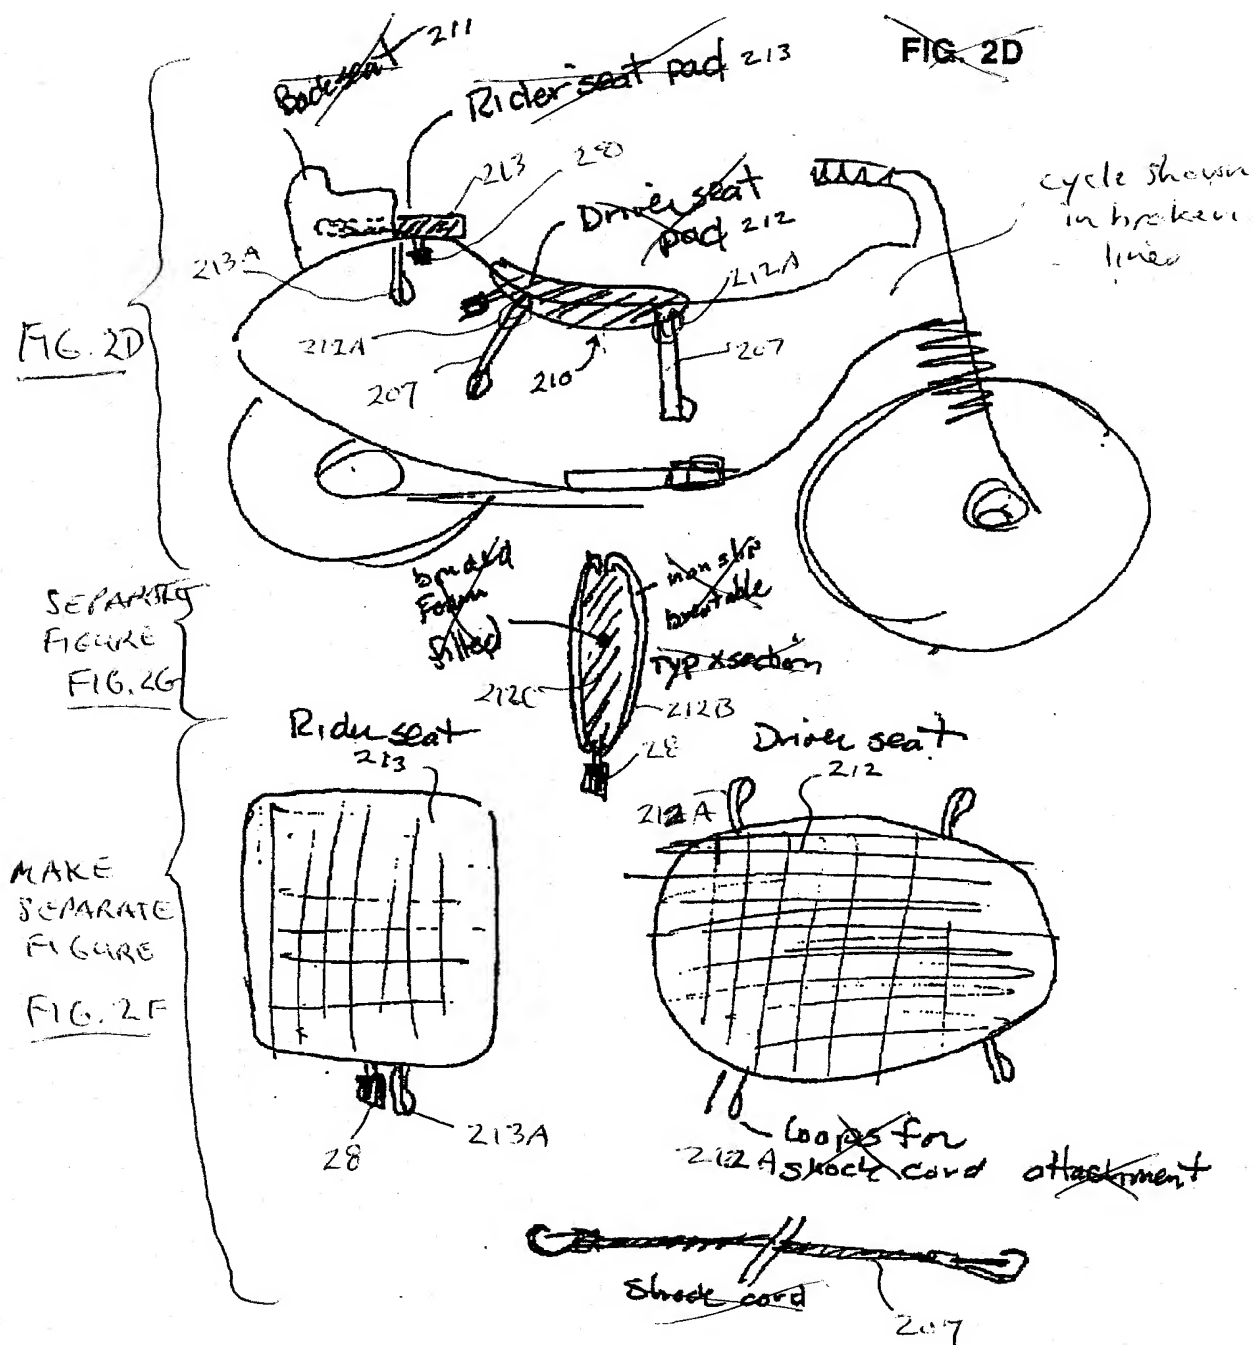 Back seat 211
Rider seat pad 213
FIG. 2D
213
280
Driver seat
pad 212
212A
cycle shown
in broken
lines
213A
FIG. 2D
212A
207
210
207
bonded
Foam
filled
non slip
breatable
Typ x section
SEPARATE
FIGURE
FIG. 2G
212C
212B
28
Rider seat
213
Driver seat
212
212A
MAKE
SEPARATE
FIGURE
FIG. 2F
28
213A
Loops for
212A shock cord attachment
Shock cord
207